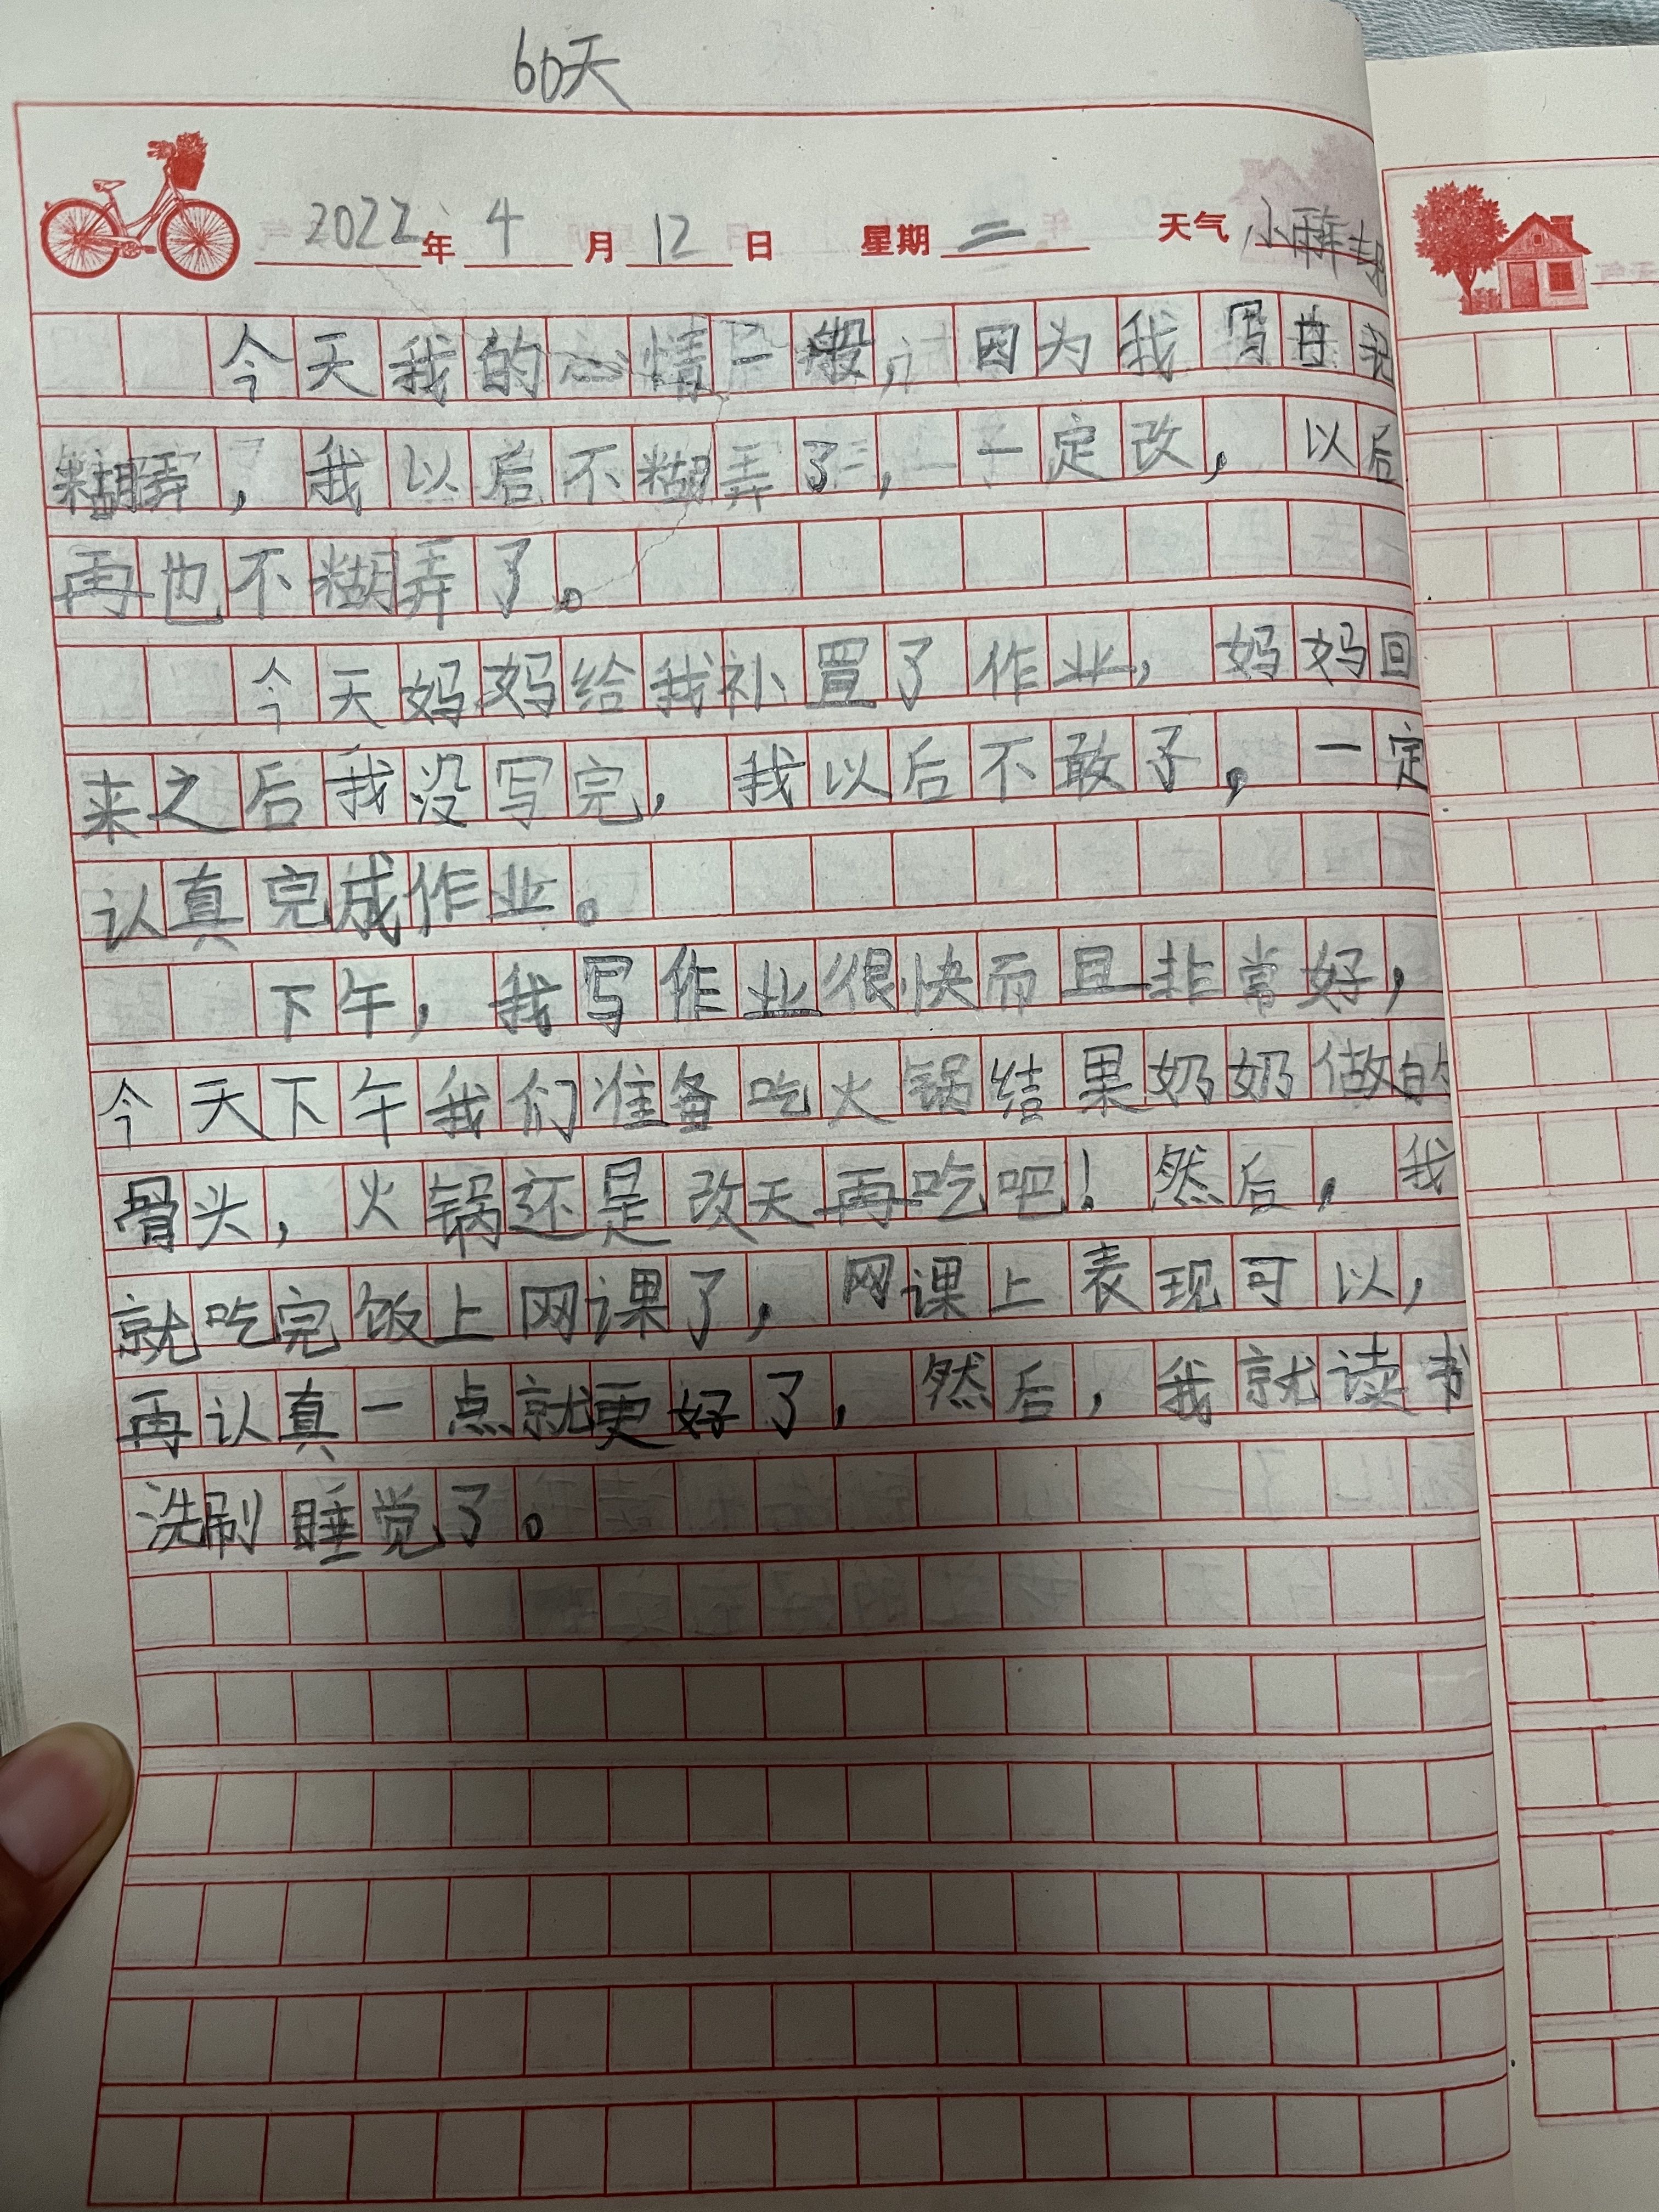 60天
2022年 4月 12日 星期二 天气 小
今天我的心情一般，因为我写日记
糊弄，我以后不糊弄了，一定改，以后
再也不糊弄了。
今天妈妈给我补置了作业，妈妈回
来之后我没写完，我以后不敢了，一定
认真完成作业。
下午，我写作业很快而且非常好，
今天下午我们准备吃火锅结果奶奶做的
骨头，火锅还是改天再吃吧！然后，我
就吃完饭上网课了，网课上表现可以，
再认真一点就更好了，然后，我就读书
洗刷睡觉了。